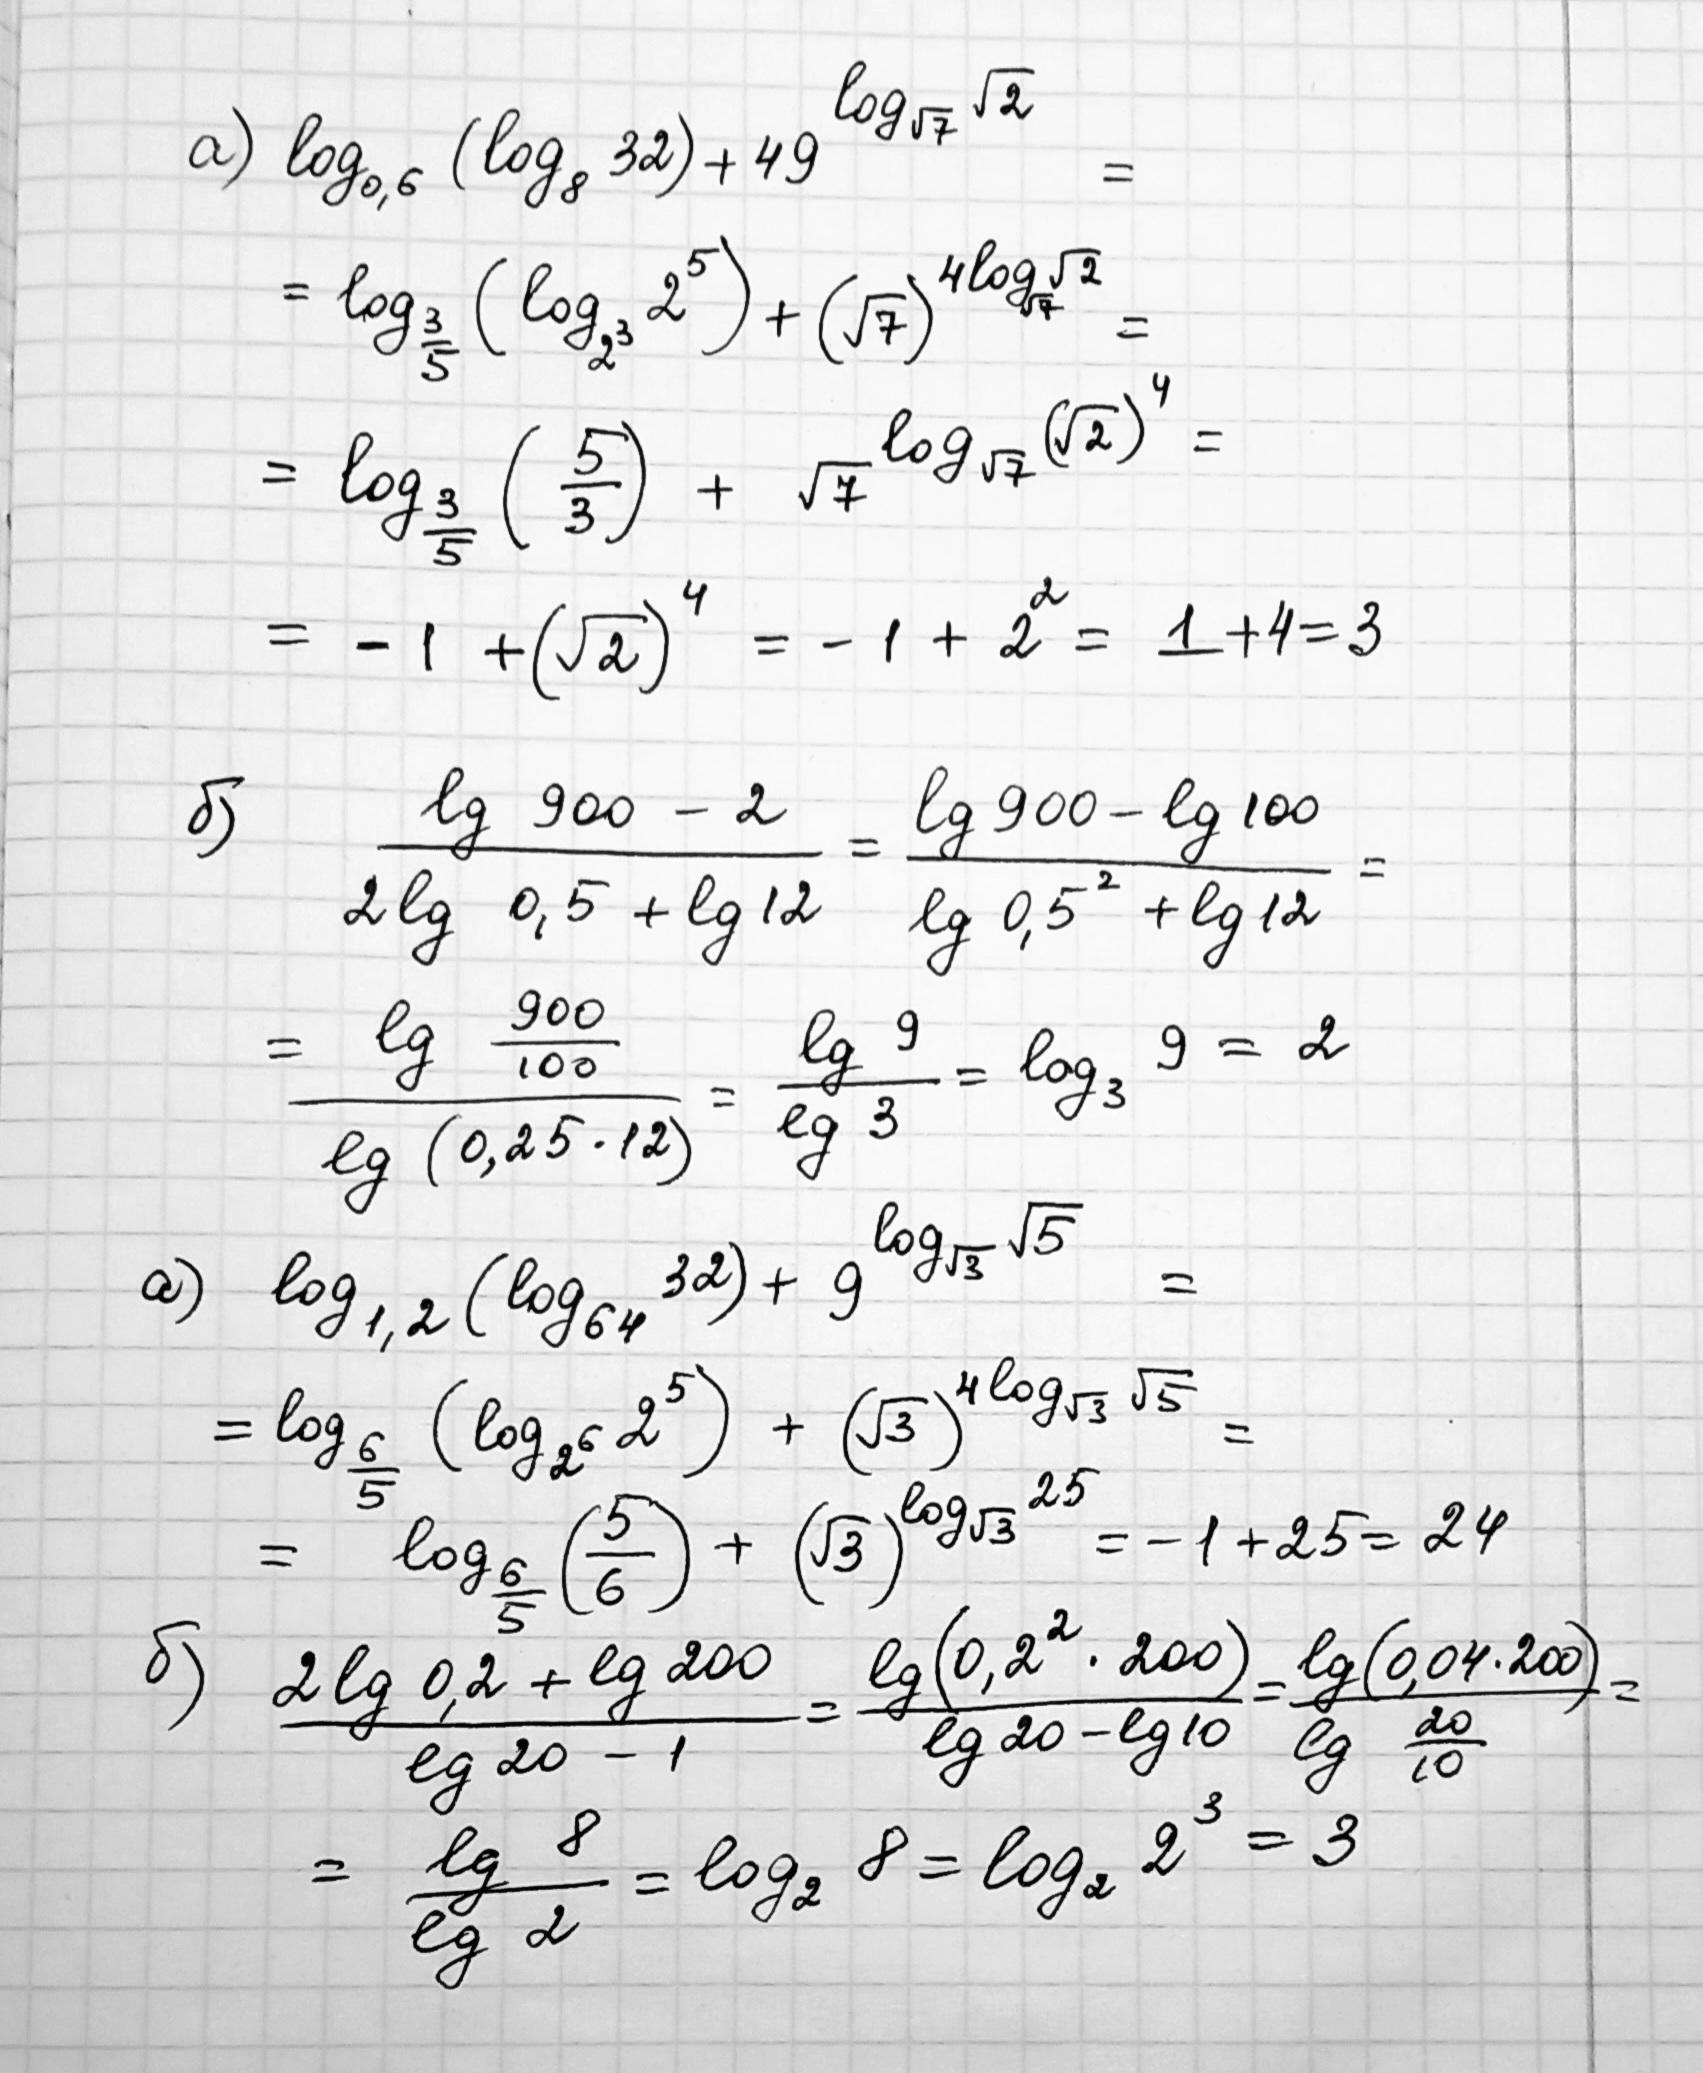 а) log₀,₆ (log₈ 32) + 49^(log_√7 √2) =
= log_(3/5) (log_(2³) 2⁵) + (√7)^(4log_√7 √2) =
= log_(3/5) (5/3) + √7^(log_√7 (√2)⁴) =
= -1 + (√2)⁴ = -1 + 2² = 1 + 4 = 3
б) (lg 900 - 2)/(2lg 0,5 + lg 12) = (lg 900 - lg 100)/(lg 0,5² + lg 12) =
= (lg 900/100)/(lg (0,25·12)) = (lg 9)/(lg 3) = log₃ 9 = 2
а) log₁,₂ (log₆₄ 32) + 9^(log_√3 √5) =
= log_(6/5) (log_(2⁶) 2⁵) + (√3)^(4log_√3 √5) =
= log_(6/5) (5/6) + (√3)^(log_√3 25) = -1 + 25 = 24
б) (2lg 0,2 + lg 200)/(lg 20 - 1) = (lg(0,2² · 200))/(lg 20 - lg 10) = (lg(0,04·200))/(lg 20/10) =
= (lg 8)/(lg 2) = log₂ 8 = log₂ 2³ = 3